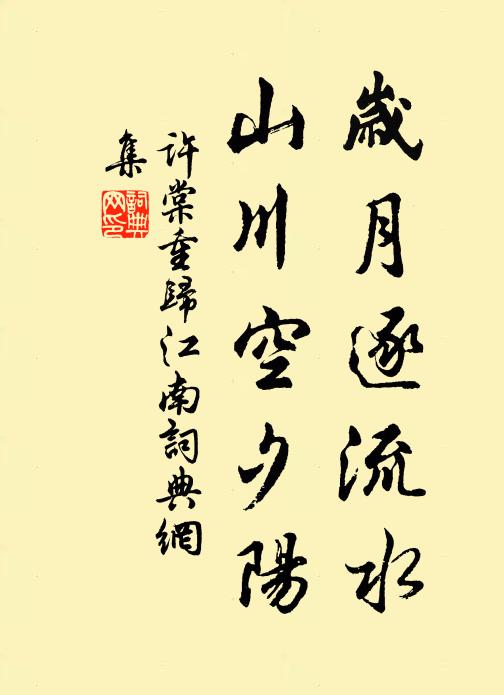 歲月逐流水
山川空夕陽
許棠重歸江南詞典網
集
詞典
网印